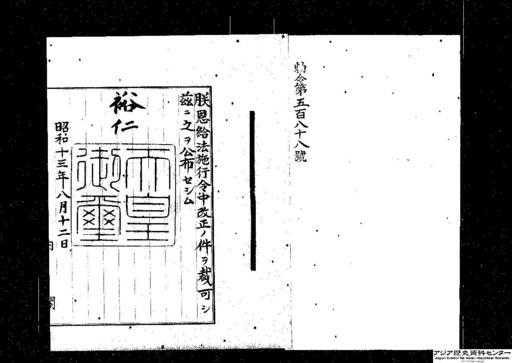 勅令第五百八十八號
朕恩給法施行令中改正ノ件ヲ裁可シ
茲ニ之ヲ公布セシム
裕仁
天皇御璽
昭和十三年八月十二日
内閣
アジア歴史資料センター
Japan Center for Asian Historical Records